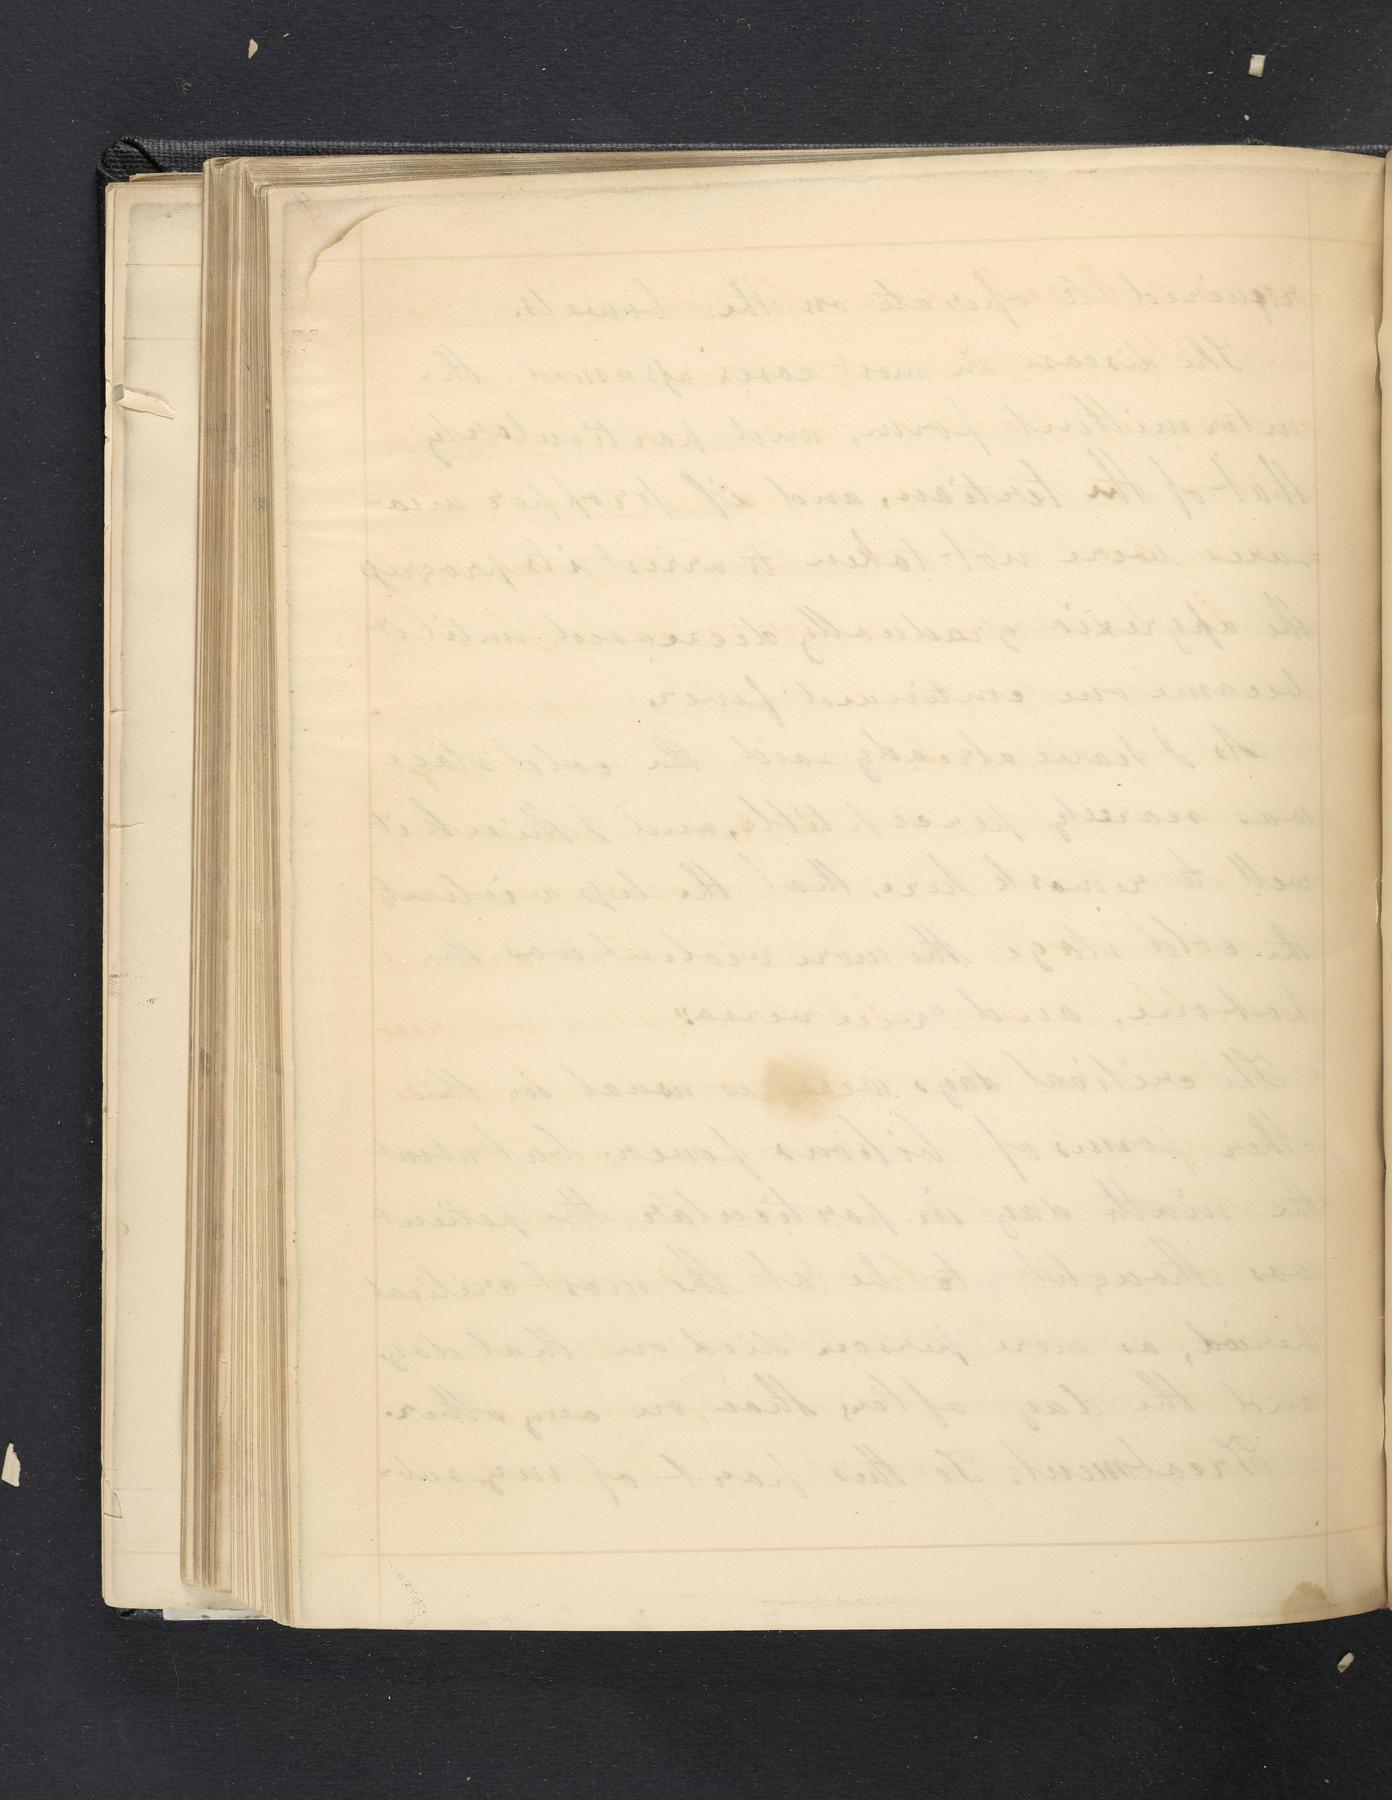 required to operate on the bowels.
The disease in most cases assumed the
intermittent form, and particularly
that of the tertian, and if propper mea-
-sures were not taken to arrest its progress
the apyrexia gradually decreased, until it
became one continued fever.
As I have already said the cold stage
was scarcely perceptible, and I think it
well to remark here, that the less violent
the cold stage the more violent was the
hot one, and "vice versa"
The critical days were as usual in the
other forms of bilious fever, but about
the ninth day in particular the patient
was thought to be at the most critical
period, as more persons died on that day
and the day after, than on any other.
Treatment. To this part of my sub-